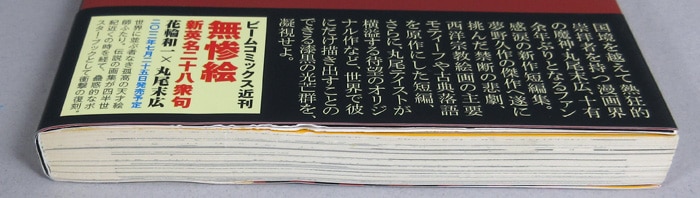 国境を越えて熱狂的
崇拝者を持つ漫画界
の魔神・丸尾末広、十有
余年ぶりとなるファン
感涙の新作短編集。
夢野久作の傑作、遂に
挑んだ禁断の悲劇、
西洋宗教絵画の主要
モティーフや古典落語
を原作にした短編、
さらに、丸尾テイストが
横溢する待望のオリジ
ナル作など、世界で彼
にだけ描き出すことの
できる漆黒の光芒群を、
凝視せよ。
ビームコミックス近刊
無惨絵
新英名二十八衆句
花輪和一×丸尾末広
二〇一二年七月二十五日発売予定
世界に並ぶ者なき孤高の天才絵
師ふたり、伝説の画集が四半世
紀近くの時を経て、蠱惑的なポ
スターブックとして衝撃の復刻。